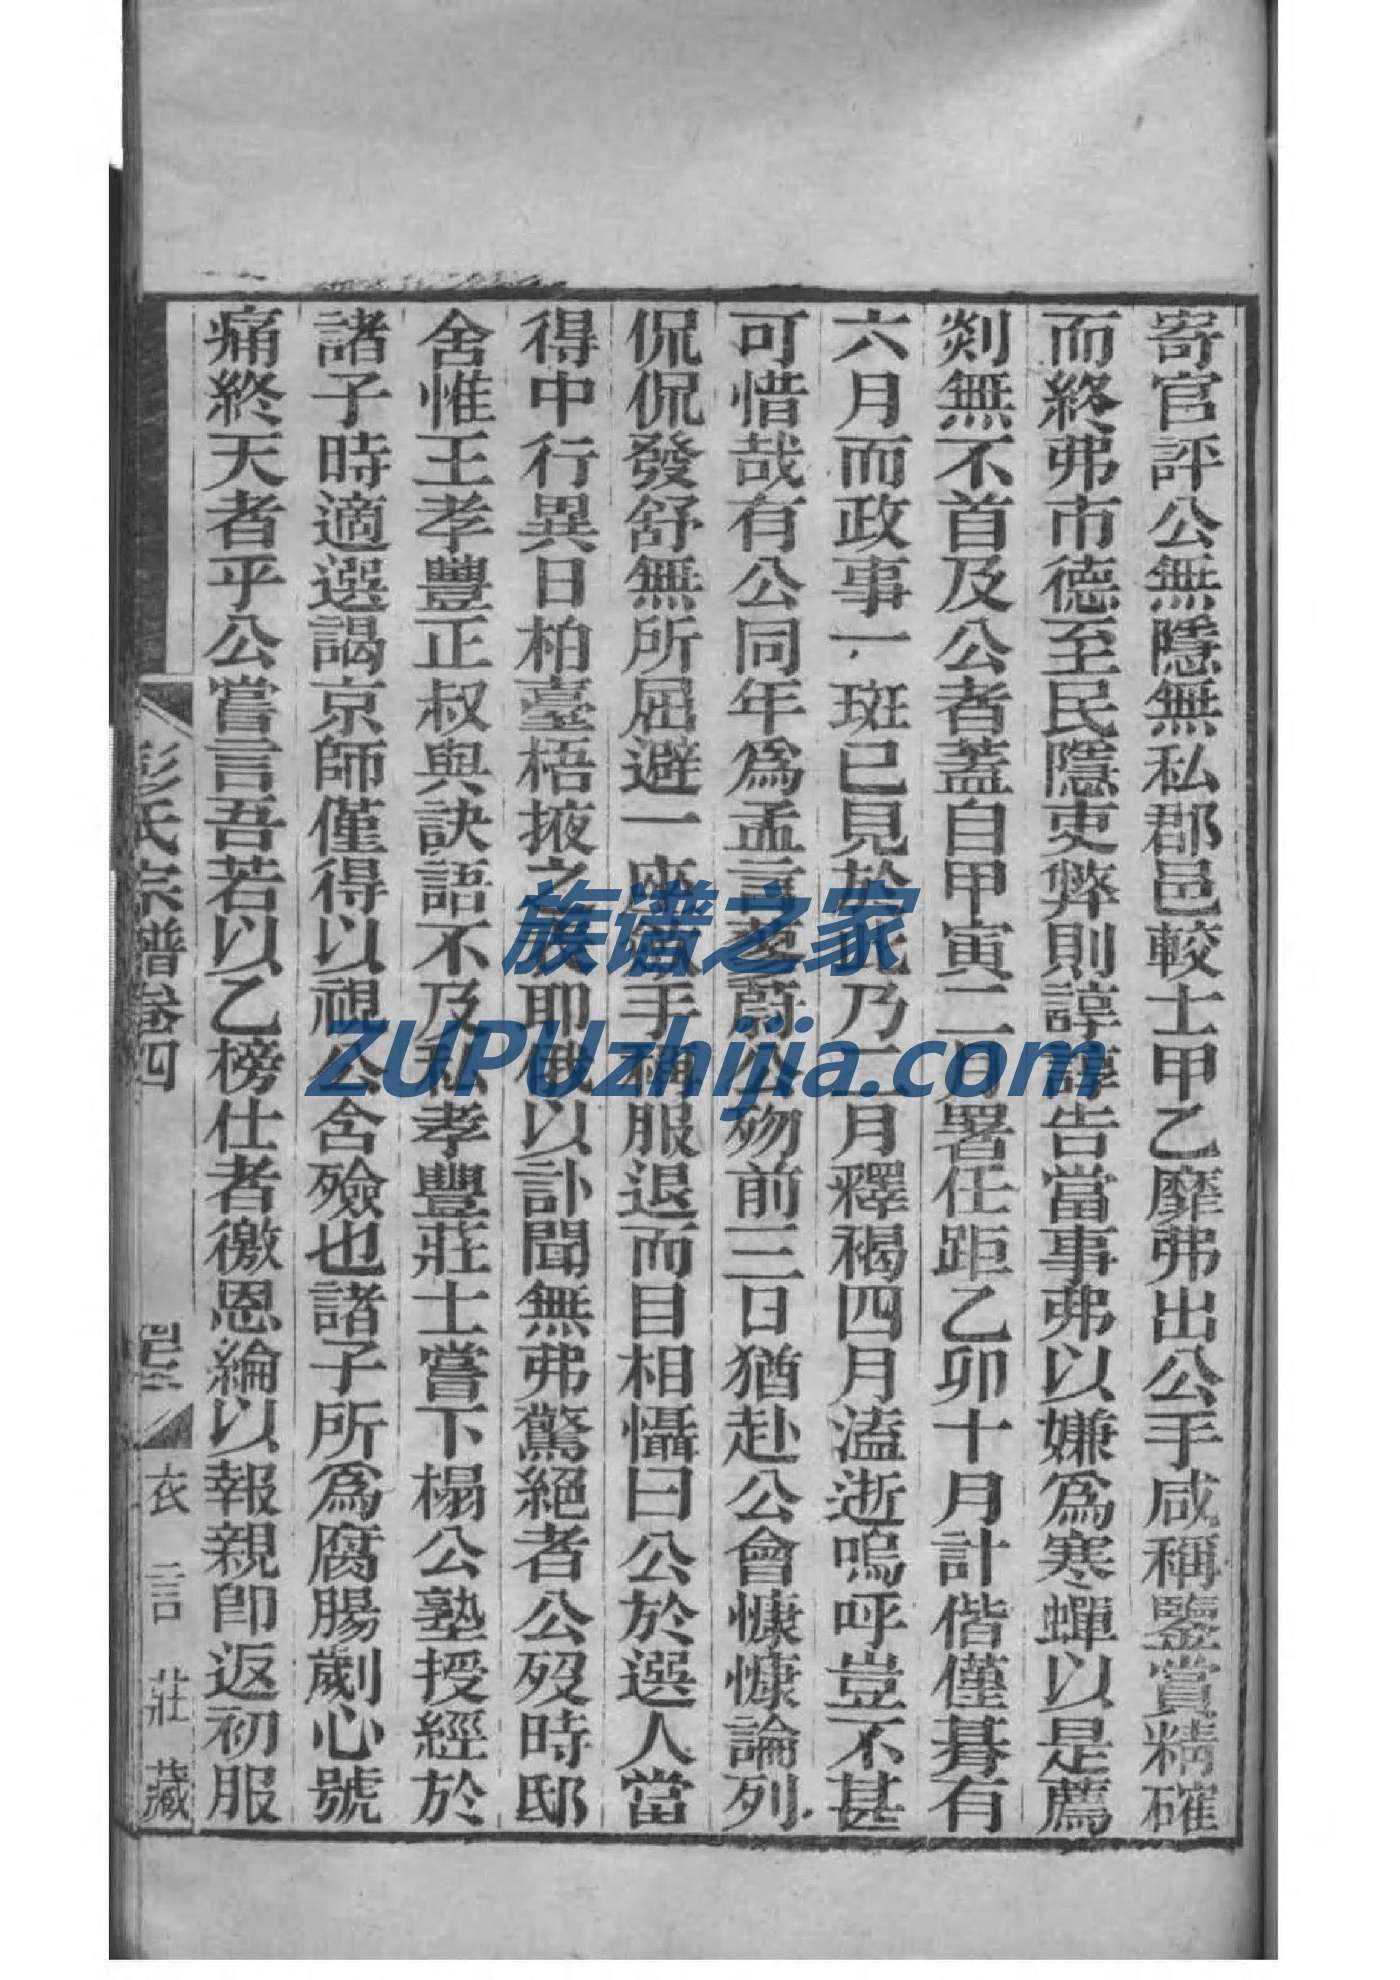 寄官評公無隱無私郡邑較士甲乙靡弗出公手咸稱鑒賞精確
而終弗市德至民隱吏弊則諄諄告當事弗以嫌爲寒蟬以是薦
剡無不首及公者蓋自甲寅二月署任距乙卯十月計偕僅朞有
六月而政事一斑已見於此乃二月釋褐四月溘逝嗚呼豈不甚
可惜哉有公同年爲孟言蔚公歿前三日猶赴公會慷慷論列
侃侃發舒無所屈避一座歛手稱服退而目相懾曰公於選人當
得中行異日柏臺梧掖之表耶俄以訃聞無弗驚絕者公歿時邸
舍惟王孝豐正叔與訣語不及私孝豐莊士嘗下榻公塾授經於
諸子時適選謁京師僅得以視公含殮也諸子所爲腐腸劌心號
痛終天者乎公嘗言吾若以乙榜仕者徼恩綸以報親卽返初服
彭氏宗譜卷四
衣言莊藏
族谱之家
ZUPUzhijia.com